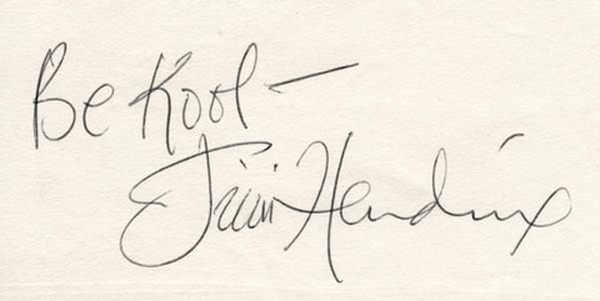 Be Kool —
Jimi Hendrix